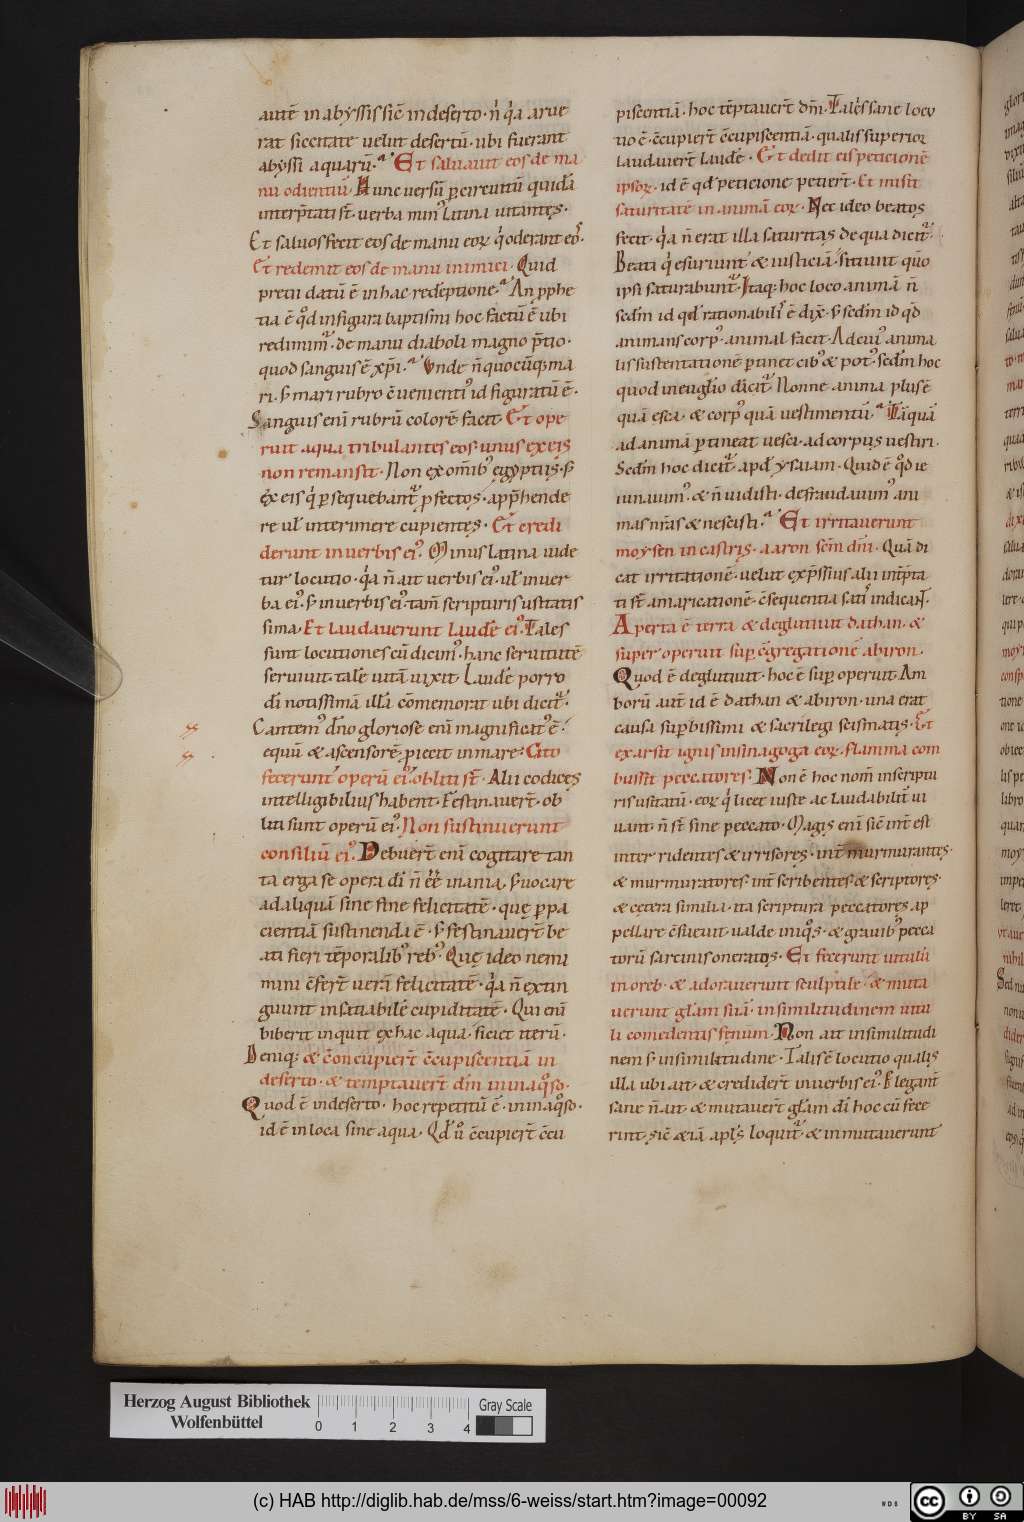 autē in abyssis sic̄ in deserto · n̄ q̇a arue
rat siccitate uelut desertū · ubi fuerant
abyssi aquarū. Et saluauit eos de ma
nu odientiū. Hunc uersū ꝑcircuitū quidā
interp̄tati st̄ · uerba min᾿ latina uitantęs ·
Et saluos fecit eos de manu eoꝝ q̇ oderant eo᾿.
Et redemit eos de manu inimici · Quid
precii datū ē in hac redēptione. An pphe
tia ē qd̓ in figura baptismi hoc factū ē ubi
redimim᾿ · de manu diaboli magno p̄tio ·
quod sanguis ē xp̄i. Vnde n̄ quocūq; ma
ri · s; mari rubro c̄uenienti᾿ id figuratū ē ·
Sanguis enī rubrū colorē facit · Et ope
ruit aqua tribulantes eos · unus ex eis
non remansit · Non ex om̄ib᾿ egyptiis · s;
ex eis q̇ ꝑsequebant᾿ ꝑfectos · app̄hende
re ul̓ interimere cupientęs · Et credi
derunt in uerbis ei᾿. Minus latina uide
tur locutio · q̇a n̄ ait uerbis ei᾿ · ul̓ in uer
ba ei᾿ · s; in uerbis ei᾿ · tam̄ scripturis usitatis
sima · Et laudauerunt laudē ei᾿. Tales
sunt locutiones cū dicim᾿ · hanc seruitutē
seruiuit · talē uitā uixit · Laudē porro
di̅ notissimā illā cōmemorat ubi dicit᾿ ·
Cantem᾿ dn̄o gloriose enī magnificat᾿ ē ·
equū & ascensorē proiecit in mare: Cito
fecerunt operū ei᾿ obliti st̄ · Alii codicęs
intelligibilius habent · Festinauer̄t · ob
liti sunt operū ei᾿ · Non sustinuerunt
consiliū ei᾿. Debuer̄t enī cogitare tan
ta erga se opera di̅ n̄ ee̅ inania, s; uocare
ad aliquā sine fine felicitatē · quę ꝑ pa
cientiā sustinenda ē · s; festinauer̄t be
ati fieri tēporalib᾿ reb᾿ · Quę ideo nemi
mini c̄fer̄t uerā felicitatē · q̇a n̄ extin
guunt insatiabilē cupiditatē · Qui enū
biberit inquit ex hac aqua · siciet iterū ·
Deniq; & c̄oncupier̄t c̄cupiscentiā in
deserto · & temptauer̄t dm̄ in inaq̊so ·
Quod ē in deserto · hoc repetitū ē · in inaq̊so ·
id ē in loca sine aqua · Qd̓ u̓ c̄cupier̄t c̄cu
piscentiā · hoc tēptauer̄t dm̄ · Tales sane locu
tio ē · c̄cupier̄t c̄cupiscentiā · qualis superioꝝ
laudauer̄t laudē · Et dedit eis peticionē
ipsoꝝ · id ē qd̓ peticione petier̄t · Et misit
saturitatē in animā eoꝝ · Nec ideo beatos
fecit · q̇a n̄ erat illa saturitas de qua dicit᾿ ·
Beati q̇ esuriunt & iusticiā sitiunt qm̄
ipsi saturabunt᾿ · Itaq; hoc loco animā n̄
sedm̄ id qd̓ rationabil᾿ ē dix̄ · s; sedm̄ id qd̓
animans corp᾿ · animal facit · Ad cui᾿ anima
lis sustentationē ꝑtinet cib᾿ & pot᾿ · sedm̄ hoc
quod in euuglio dicit᾿. Nonne anima plus ē
quā esca · & corp᾿ quā uestimentū. Tāquā
ad animā ꝑtineat uesci · ad corpus uestiri ·
Sedm̄ hoc dicit᾿ · apd̓ ysaiam · Quid ē qd̓ ie
iunauim᾿ · & n̄ uidisti · defraudauim᾿ ani
mas nr̄as & nescisti. Et irritauerunt
moysen in castris · aaron scm̄ dn̄i · Quā di
cat irritationē · uelut exp̄ssius alii int̄p̄ta
ti st̄ amaricationē · c̄sequentia satis indicant.
Aperta ē terra & deglutiuit dathan · &
super operuit sup̄ c̄gregationē abiron ·
Quod ē deglutiuit · hoc ē sup̄ operuit · Am
borū aut̄ id ē dathan & abiron · una erat
causa sup̄bissimi & sacrilegi scismatis · Et
exarsit ignis in sinagoga eoꝝ · flamma com
bussit peccatores. Non ē hoc nom̄ in scriptu
ris usitatū · eoꝝ q̇ licet iuste ac laudabilit̄ ui
uant · n̄ st̄ sine peccato · Magis enī sic̄ int̄ est
inter ridentes & irrisoręs · int̄ murmurantęs ·
& murmuratores int̄ scribentes & scriptoręs ·
& cętera similia · ita scriptura peccatoręs ap
pellare c̄sueuit ualde iniq᾿s · & grauib᾿ pecca
torū sarcinis oneratos · Et fecerunt uitulū
in oreb · & adorauerunt sculptile · & muta
uerunt glām suā · in similitudinem uitu
li comedentis fenum · Non ait in similitudi
nem s; in similitudine · Talis ē locutio qualis
illa ubi ait · & credider̄t in uerbis ei᾿ · Elegant̄
sane n̄ ait · & mutauer̄t glām di̅ hoc cū fece
rint sic̄ & iā apl̄s loquit᾿ · & inmutauerunt
Herzog August Bibliothek
Wolfenbüttel
0 1 2 3 4
Gray Scale
(c) HAB http://diglib.hab.de/mss/6-weiss/start.htm?image=00092
cc BY SA